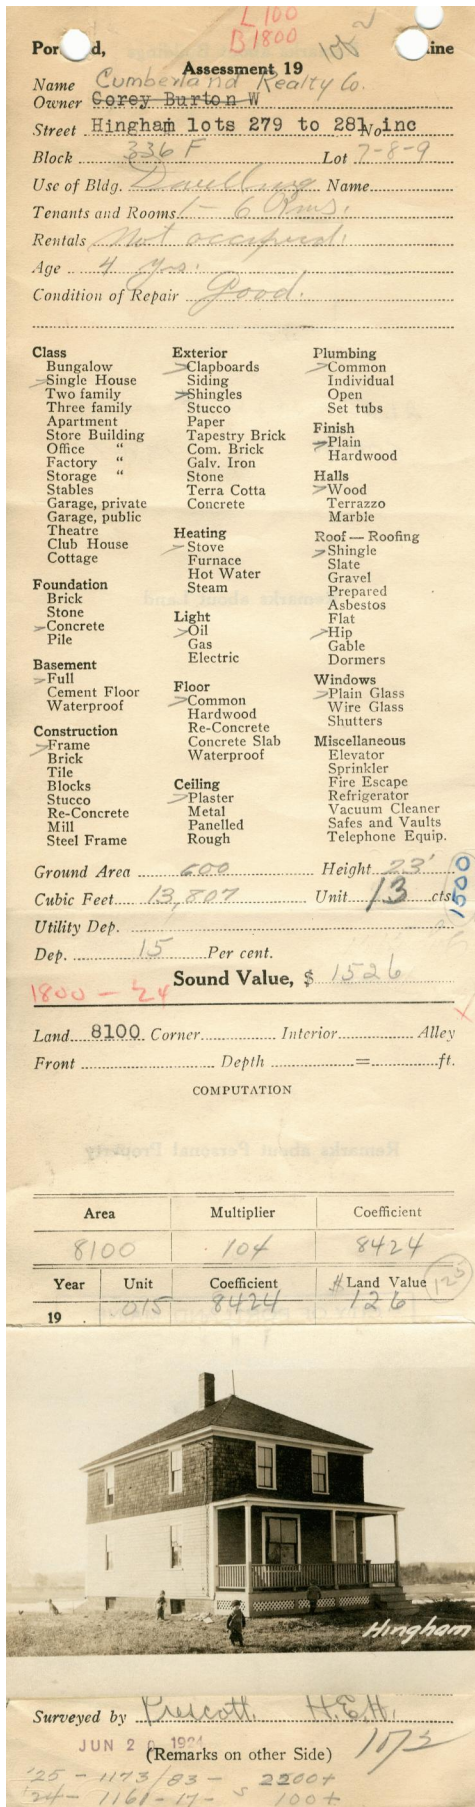 L 100
B 1800
Assessment 19
Name Cumberland Realty Co.
Owner Corey Burton W
Street Hingham lots 279 to 281 No. inc
Block 336 F Lot 7-8-9
Use of Bldg. Dwelling Name
Tenants and Rooms 1 - 6 Rms.
Rentals Not occupied.
Age 4 yrs.
Condition of Repair Good.
Class
Bungalow
Single House
Two family
Three family
Apartment
Store Building
Office "
Factory "
Storage "
Stables
Garage, private
Garage, public
Theatre
Club House
Cottage
Foundation
Brick
Stone
Concrete
Pile
Basement
Full
Cement Floor
Waterproof
Construction
Frame
Brick
Tile
Blocks
Stucco
Re-Concrete
Mill
Steel Frame
Exterior
Clapboards
Siding
Shingles
Stucco
Paper
Tapestry Brick
Com. Brick
Galv. Iron
Stone
Terra Cotta
Concrete
Heating
Stove
Furnace
Hot Water
Steam
Light
Oil
Gas
Electric
Floor
Common
Hardwood
Re-Concrete
Concrete Slab
Waterproof
Ceiling
Plaster
Metal
Panelled
Rough
Plumbing
Common
Individual
Open
Set tubs
Finish
Plain
Hardwood
Halls
Wood
Terrazzo
Marble
Roof — Roofing
Shingle
Slate
Gravel
Prepared
Asbestos
Flat
Hip
Gable
Dormers
Windows
Plain Glass
Wire Glass
Shutters
Miscellaneous
Elevator
Sprinkler
Fire Escape
Refrigerator
Vacuum Cleaner
Safes and Vaults
Telephone Equip.
Ground Area 600 Height 23'
Cubic Feet 13,807 Unit 13 cts
1500
Utility Dep.
Dep. 15 Per cent.
Sound Value, $ 1526
1800 - 24
Land 8100 Corner Interior Alley
Front Depth = ft.
COMPUTATION
Area Multiplier Coefficient
8100 .104 8424
Year Unit Coefficient Land Value
19 .015 8424 $126
125
Hingham
Surveyed by Prescott. H.E.H.
JUN 2 1924
(Remarks on other Side)
'25 - 1173/83 - 2200+
'24 - 1161-17- 100+